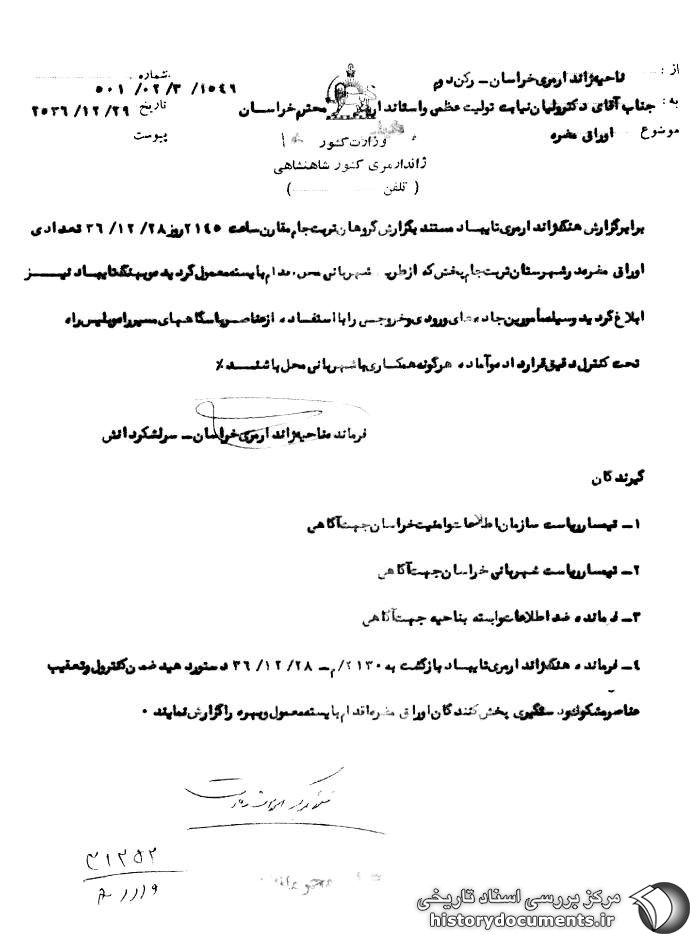 از : ناحیه ژاندارمری خراسان – رکن دوم
به : جناب آقای دکتر ولیان نیابت تولیت عظمی و استاندار محترم خراسان
موضوع اوراق مضره
شماره ۵۰۱ /۰۲ /۳ /۱۵۴۹
تاریخ ۲۵۳۶/۱۲/۲۹
پیوست
وزارت کشور
ژاندارمری کشور شاهنشاهی
( تلفن )
برابر گزارش هنگ ژاندارمری تایباد مستند بگزارش گروهان تربت جام مقارن ساعت ۲۱۴۵ روز ۳۶/۱۲/۲۸ تعدادی
اوراق مضره در شهرستان تربت جام پخش که از طریق شهربانی محل اقدام بایسته معمول گردیده و بهنگ تایباد نیز
ابلاغ گردید وسیله مأمورین جاده های ورودی و خروجی را با استفاده از عناصر پاسگاههای مسیر راه و پلیس راه
تحت کنترل دقیق قرار داده و آماده هرگونه همکاری با شهربانی محل باشند ٪
فرمانده ناحیه ژاندارمری خراسان – سرلشکر دانش
گیرندگان
۱– تیمسار ریاست سازمان اطلاعات و امنیت خراسان جهت آگاهی
۲– تیمسار ریاست شهربانی خراسان جهت آگاهی
۳– فرمانده ضد اطلاعات وابسته بناحیه جهت آگاهی
۴– فرمانده هنگ ژاندارمری تایباد بازگشت به ۲۱۳۰/م – ۳۶/۱۲/۲۸ دستور دهید ضمن کنترل و تعقیب
عناصر مشکوک و دستگیری پخش کنندگان اوراق مضره اقدام بایسته معمول و بهره را گزارش نمایند .
۴۱۲۵۲
مرکز بررسی اسناد تاریخی
historydocuments.ir